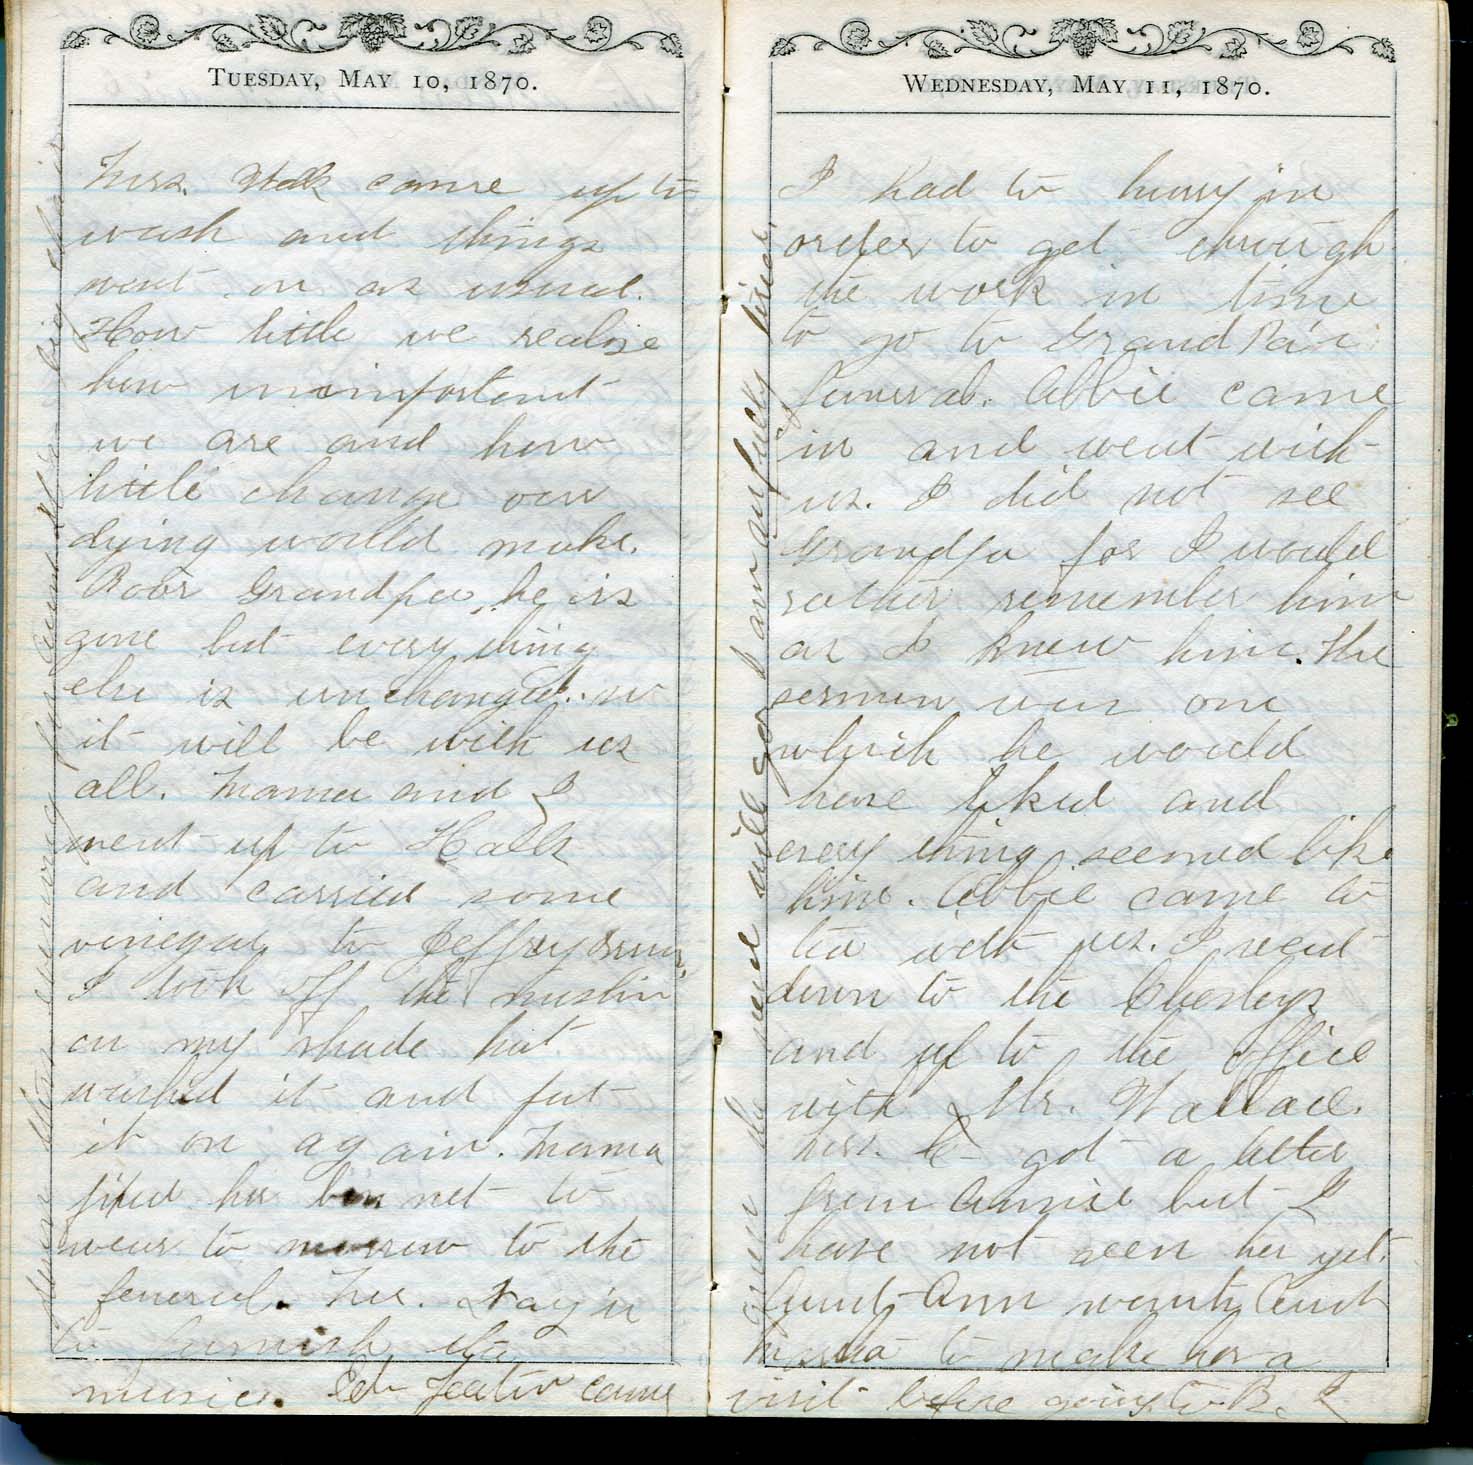 TUESDAY, MAY 10, 1870.
Mrs. came up to
wash and things
went on as usual.
How little we realize
how unimportant
we are and how
little change our
dying would make.
Poor Grandpa, he is
gone but every thing
else is unchanged. so
it will be with us
all. Mama and I
went up to Halls
and carried some
vinegar to
I took off the muslin
on my shade hat
washed it and put
it on again. Mama
fixed her bonnet to
wear to morrow to the
funeral. Mr. Gray is
to furnish the
music. Ed came
down this evening for Aunt big chair
WEDNESDAY, MAY 11, 1870.
I had to hurry in
order to get through
the work in time
to go to Grand Pa's
funeral. Abbie came
in and went with
us. I did not see
Grandpa for I would
rather remember him
as I knew him. The
sermon was one
which he would
have liked and
every thing seemed like
him. Abbie came to
tea with us. I went
down to the Chesleys
and up to the office
with Mr. Wallace.
Mrs. C- got a letter
from Annie but I
have not seen her yet.
Aunt Ann wants Aunt
Martha to make her a
visit before going to B. I
she never will go. I am awfully tired.